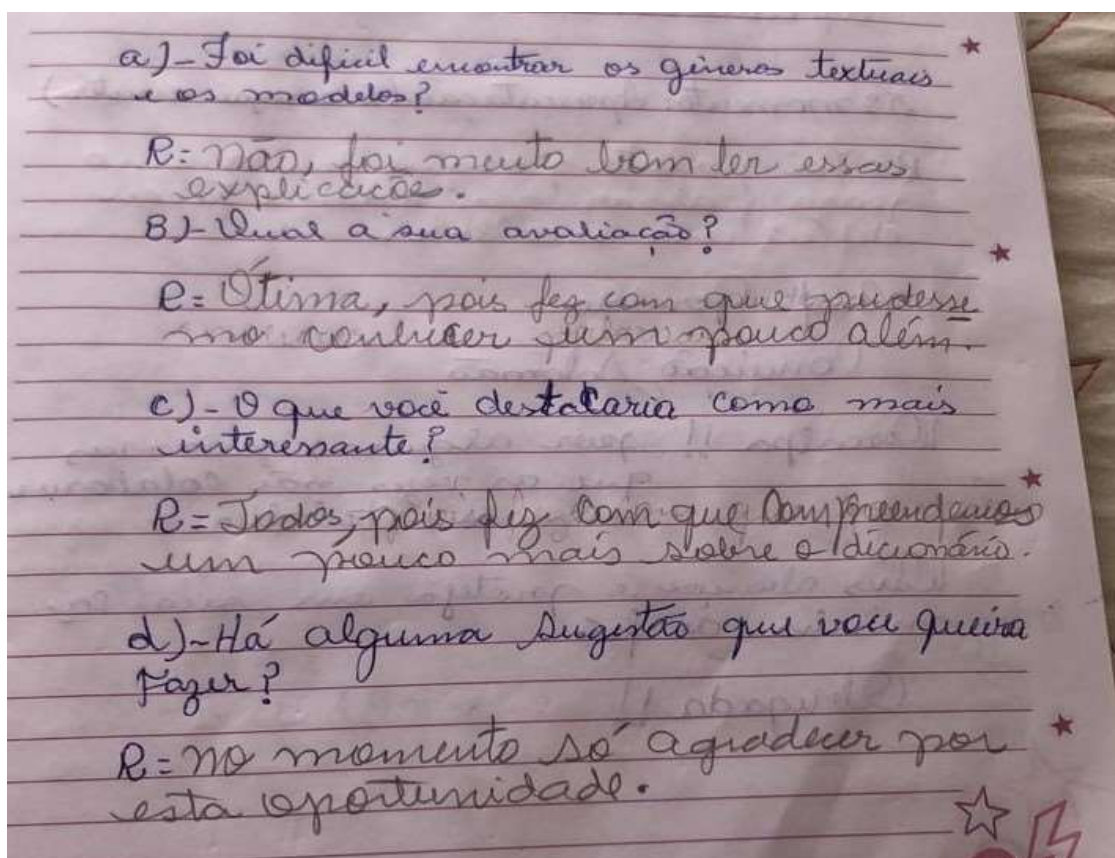 a)- Foi dificil encontrar os gêneros textuais
e os modelos?
R: não, foi muito bom ler essas
explicações.
B)- Qual a sua avaliação?
R= Ótima, pois fez com que pudesse
mo conhecer um pouco além.
c)- O que você destacaria como mais
interessante?
R= Todos, pois fez com que compreendemos
um pouco mais sobre o dicionário.
d)- Há alguma sugestão que você queira
Fazer?
R= no momento só agradecer por
esta oportunidade.